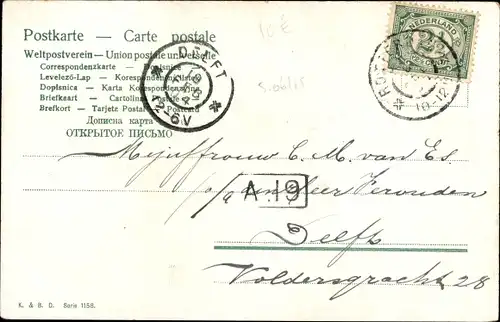 Postkarte - Carte postale
Weltpostverein - Union postale universelle
Correspondenzkarte - Dopisnice
Levelező-Lap - Korespondenzkarte
Dopisnica - Karta Korespondencyjna
Briefkaart - Cartolina Postale
Brefkort - Tarjeta Postal - Postcard
Дописна карта
ОТКРЫТОЕ ПИСЬМО
10€
DELFT
2-6V
NEDERLAND
2½
CENT
10-12
Mejuffrouw C. M. van Es.
A.19
Delft
Voldersgracht 28
K. & B. D. Serie 1158.